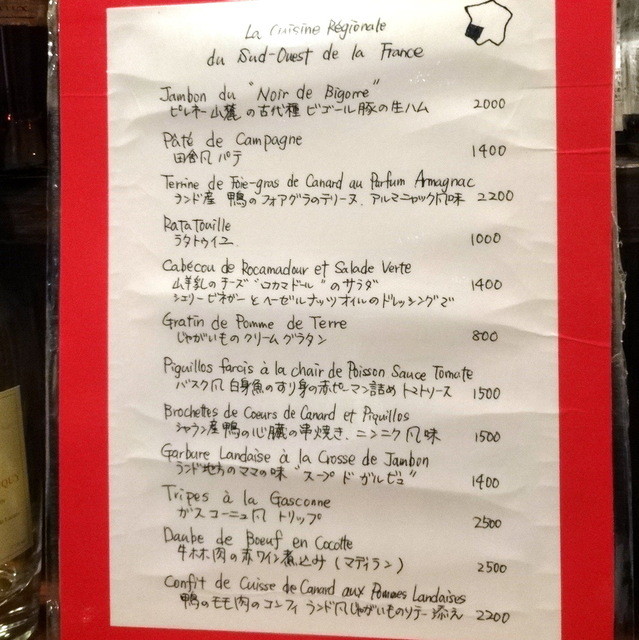 La Cuisine Régionale
du Sud-Ouest de la France
Jambon du "Noir de Bigorre"
ピレネー山麓の古代種 ビゴール豚の生ハム 2000
Pâté de Campagne
田舎風パテ 1400
Terrine de Foie-gras de Canard au Parfum Armagnac
ランド産 鴨のフォアグラのテリーヌ、アルマニャック風味 2200
RataTouille
ラタトゥイユ 1000
Cabécou de Rocamadour et Salade Verte
山羊乳のチーズ"ロカマドール"のサラダ 1400
シェリービネガーとヘーゼルナッツオイルのドレッシングで
Gratin de Pomme de Terre
じゃがいものクリームグラタン 800
Piguillos farcis à la chair de Poisson Sauce Tomate
バスク風 白身魚のすり身の赤ピーマン詰め トマトソース 1500
Brochettes de Coeurs de Canard et Piquillos
シャラン産鴨の心臓の串焼き、ニンニク風味 1500
Garbure Landaise à la Crosse de Jambon
ランド地方のママの味 "スープ ド ガルビュ" 1400
Tripes à la Gasconne
ガスコーニュ風 トリップ 2500
Daube de Boeuf en Cocotte
牛ホホ肉の赤ワイン煮込み (マディラン) 2500
Confit de Cuisse de Canard aux Pommes Landaises
鴨のモモ肉のコンフィ ランド風じゃがいものソテー添え 2200